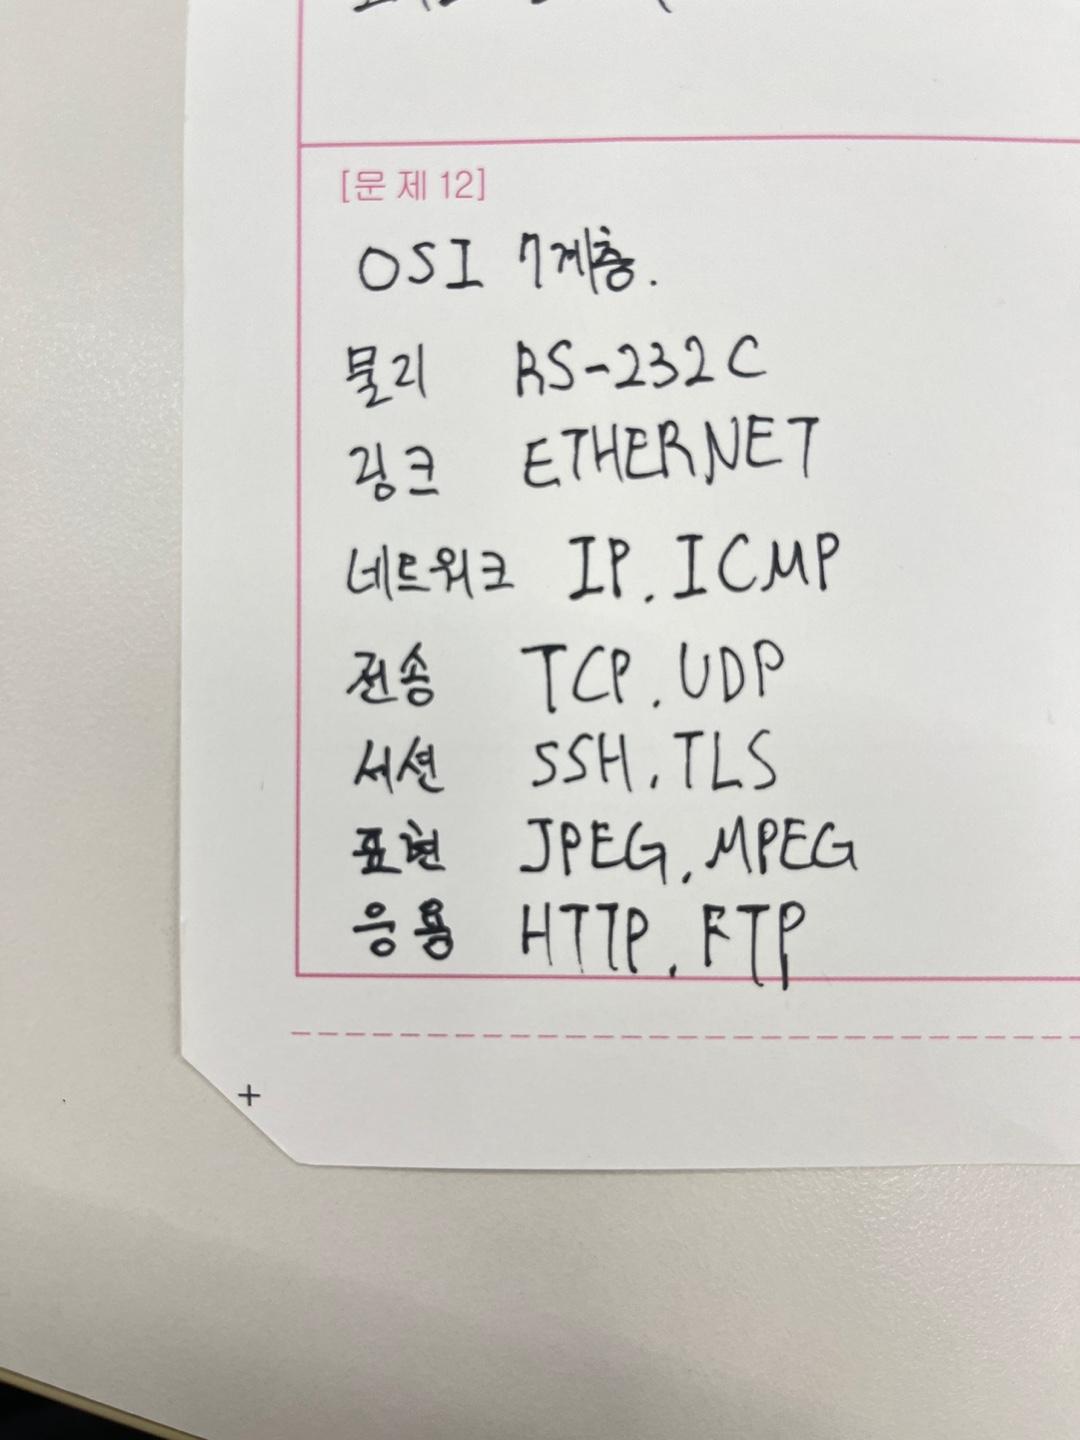 [문제 12]
OSI 7계층.
물리 RS-232C
링크 ETHERNET
네트워크 IP. ICMP
전송 TCP. UDP
세션 SSH. TLS
표현 JPEG. MPEG
응용 HTTP. FTP